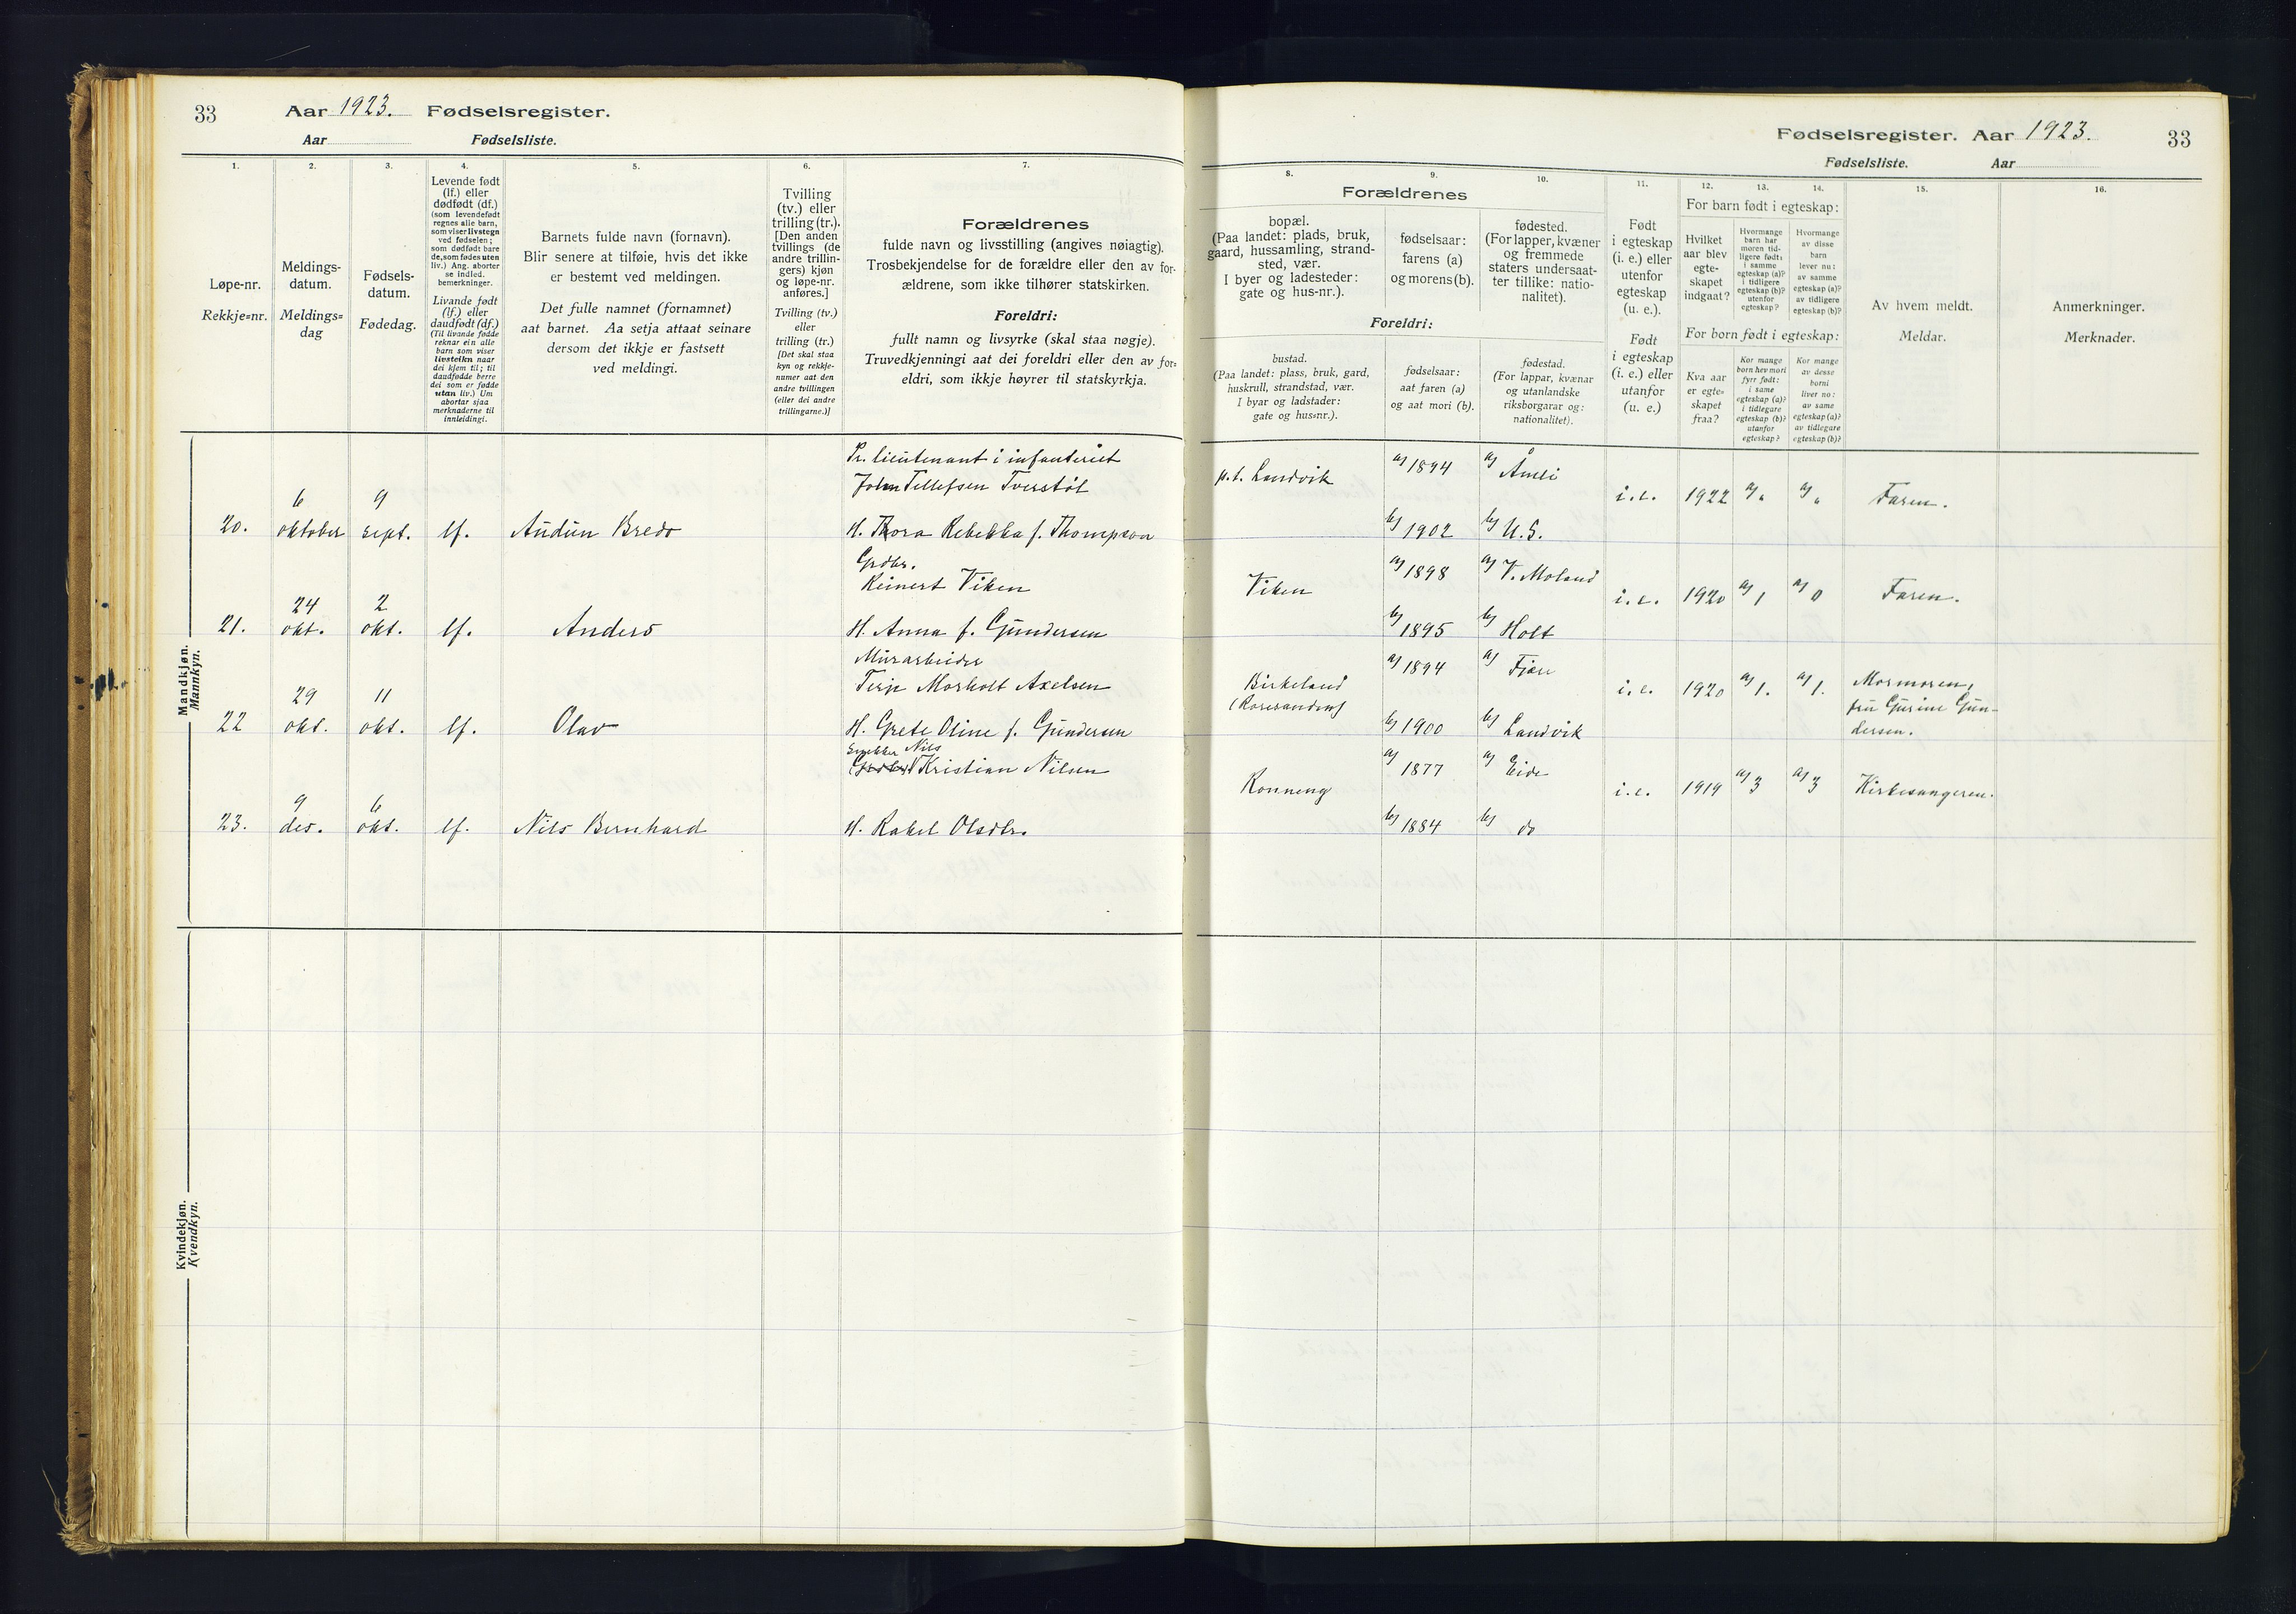 33
Aar 1923. Fødselsregister.
Aar Fødselsliste.
1.
2.
3.
4.
5.
6.
7.
Løpe-nr.
Rekkje=nr.
Meldings-
datum.
Meldings=
dag
Fødsels-
datum.
Fødedag.
Levende født
(lf.) eller
dødfødt (df.)
(som levendefødt
regnes alle barn,
som viser livstegn
ved fødselen;
som dødfødt bare
de, som fødes uten
liv.) Ang. aborter
se indled.
bemerkninger.
Livande født
(lf.) eller
daudfødt (df.)
(Til livande fødde
reknar ein alle
barn som viser
livsteikn naar
dei kjem til; til
daudfødde berre
dei som er fødde
utan liv.) Um
abortar sjaa
merknaderne til
innleidingi.
Barnets fulde navn (fornavn).
Blir senere at tilføie, hvis det ikke
er bestemt ved meldingen.
Det fulle namnet (fornamnet)
aat barnet. Aa setja attaat seinare
dersom det ikkje er fastsett
ved meldingi.
Tvilling
(tv.) eller
trilling (tr.).
[Den anden
tvillings (de
andre trillin-
gers) kjøn
og løpe-nr.
anføres.]
Tvilling (tv.)
eller
trilling (tr.)
[Det skal staa
kyn og rekkje-
numer aat den
andre tvillingen
(eller dei andre
trillingarne.)]
Forældrenes
fulde navn og livsstilling (angives nøiagtig).
Trosbekjendelse for de forældre eller den av for-
ældrene, som ikke tilhører statskirken.
Foreldri:
fullt namn og livsyrke (skal staa nøgje).
Truvedkjenningi aat dei foreldri eller den av for-
eldri, som ikkje høyrer til statskyrkja.
Mandkjøn.
Mannkyn.
Pr. lieutenant i infanteriet
John Tellefsen Tverstøl
6 9
20. oktober sept. lf. Audun Bredo H. Thora Rebekka f. Thompson
Grdbr.
Reinert Viken
24 2
21. okt. okt. lf. Anders H. Anna f. Gundersen
Murarbeider
Terje Morholt Axelsen
29 11
22 okt. okt. lf. Olav H. Grete Oline f. Gundersen
Snekker Nils
Kristian Nilsen
9 6
23. des. okt. lf. Nils Bernhard H. Rakel Olsdtr.
Kvindekjøn.
Kvendkyn.
Fødselsregister. Aar 1923. 33
Fødselsliste. Aar
8.
9.
10.
11.
12.
13.
14.
15.
16.
Forældrenes
bopæl.
(Paa landet: plads, bruk,
gaard, hussamling, strand-
sted, vær.
I byer og ladesteder:
gate og hus-nr.).
fødselsaar:
farens (a)
og morens (b).
fødested.
(For lapper, kvæner
og fremmede
staters undersaat-
ter tillike: natio-
nalitet).
Foreldri:
bustad.
(Paa landet: plass, bruk, gard,
huskrull, strandstad, vær.
I byar og ladstader:
gate og hus=nr.).
fødselsaar:
aat faren (a)
og aat mori (b).
fødestad.
(For lappar, kvænar
og utanlandske
riksborgarar og:
nationalitet).
Født
i egteskap
(i. e.) eller
utenfor
egteskap
(u. e.).
Født
i egteskap
(i. e.) eller
utanfor
(u. e.)
For barn født i egteskap:
Hvilket
aar blev
egte-
skapet
indgaat?
Hvormange
barn har
moren tid-
ligere født:
i samme
egteskap (a)?
i tidligere
egteskap (b)?
utenfor
egteskap?
Hvormange
av disse
barn
lever nu:
av samme
egteskap (a)?
av tidligere
egteskap (b)?
For born født i egteskap:
Kva aar
er egte=
skapet
fraa?
Kor mange
born hev mori
fyrr født:
i same
egteskap (a)?
i tidlegare
egteskap (b)?
utanfor
egteskap?
Kor mange
av desse
borni
liver no:
av same
egteskap (a)?
av tidlegare
egteskap (b)?
Av hvem meldt.
Meldar.
Anmerkninger.
Merknader.
p.t. Landvik a) 1894 a) Åmli i.e. 1922 a) " a) " Faren.
b) 1902 b) U.S.
Viken a) 1898 a) V. Moland i.e. 1920 a) 1 a) 0 Faren.
b) 1895 b) Holt
Birkeland a) 1894 a) Fjære i.e. 1920 a) 1. a) 1. Mormoren,
fru Gurine Gun-
dersen.
b) 1900 b) Landvik
Rønneng a) 1877 a) Eide i.e. 1919 a) 3 a) 3 Kirkesangeren.
b) 1884 b) do